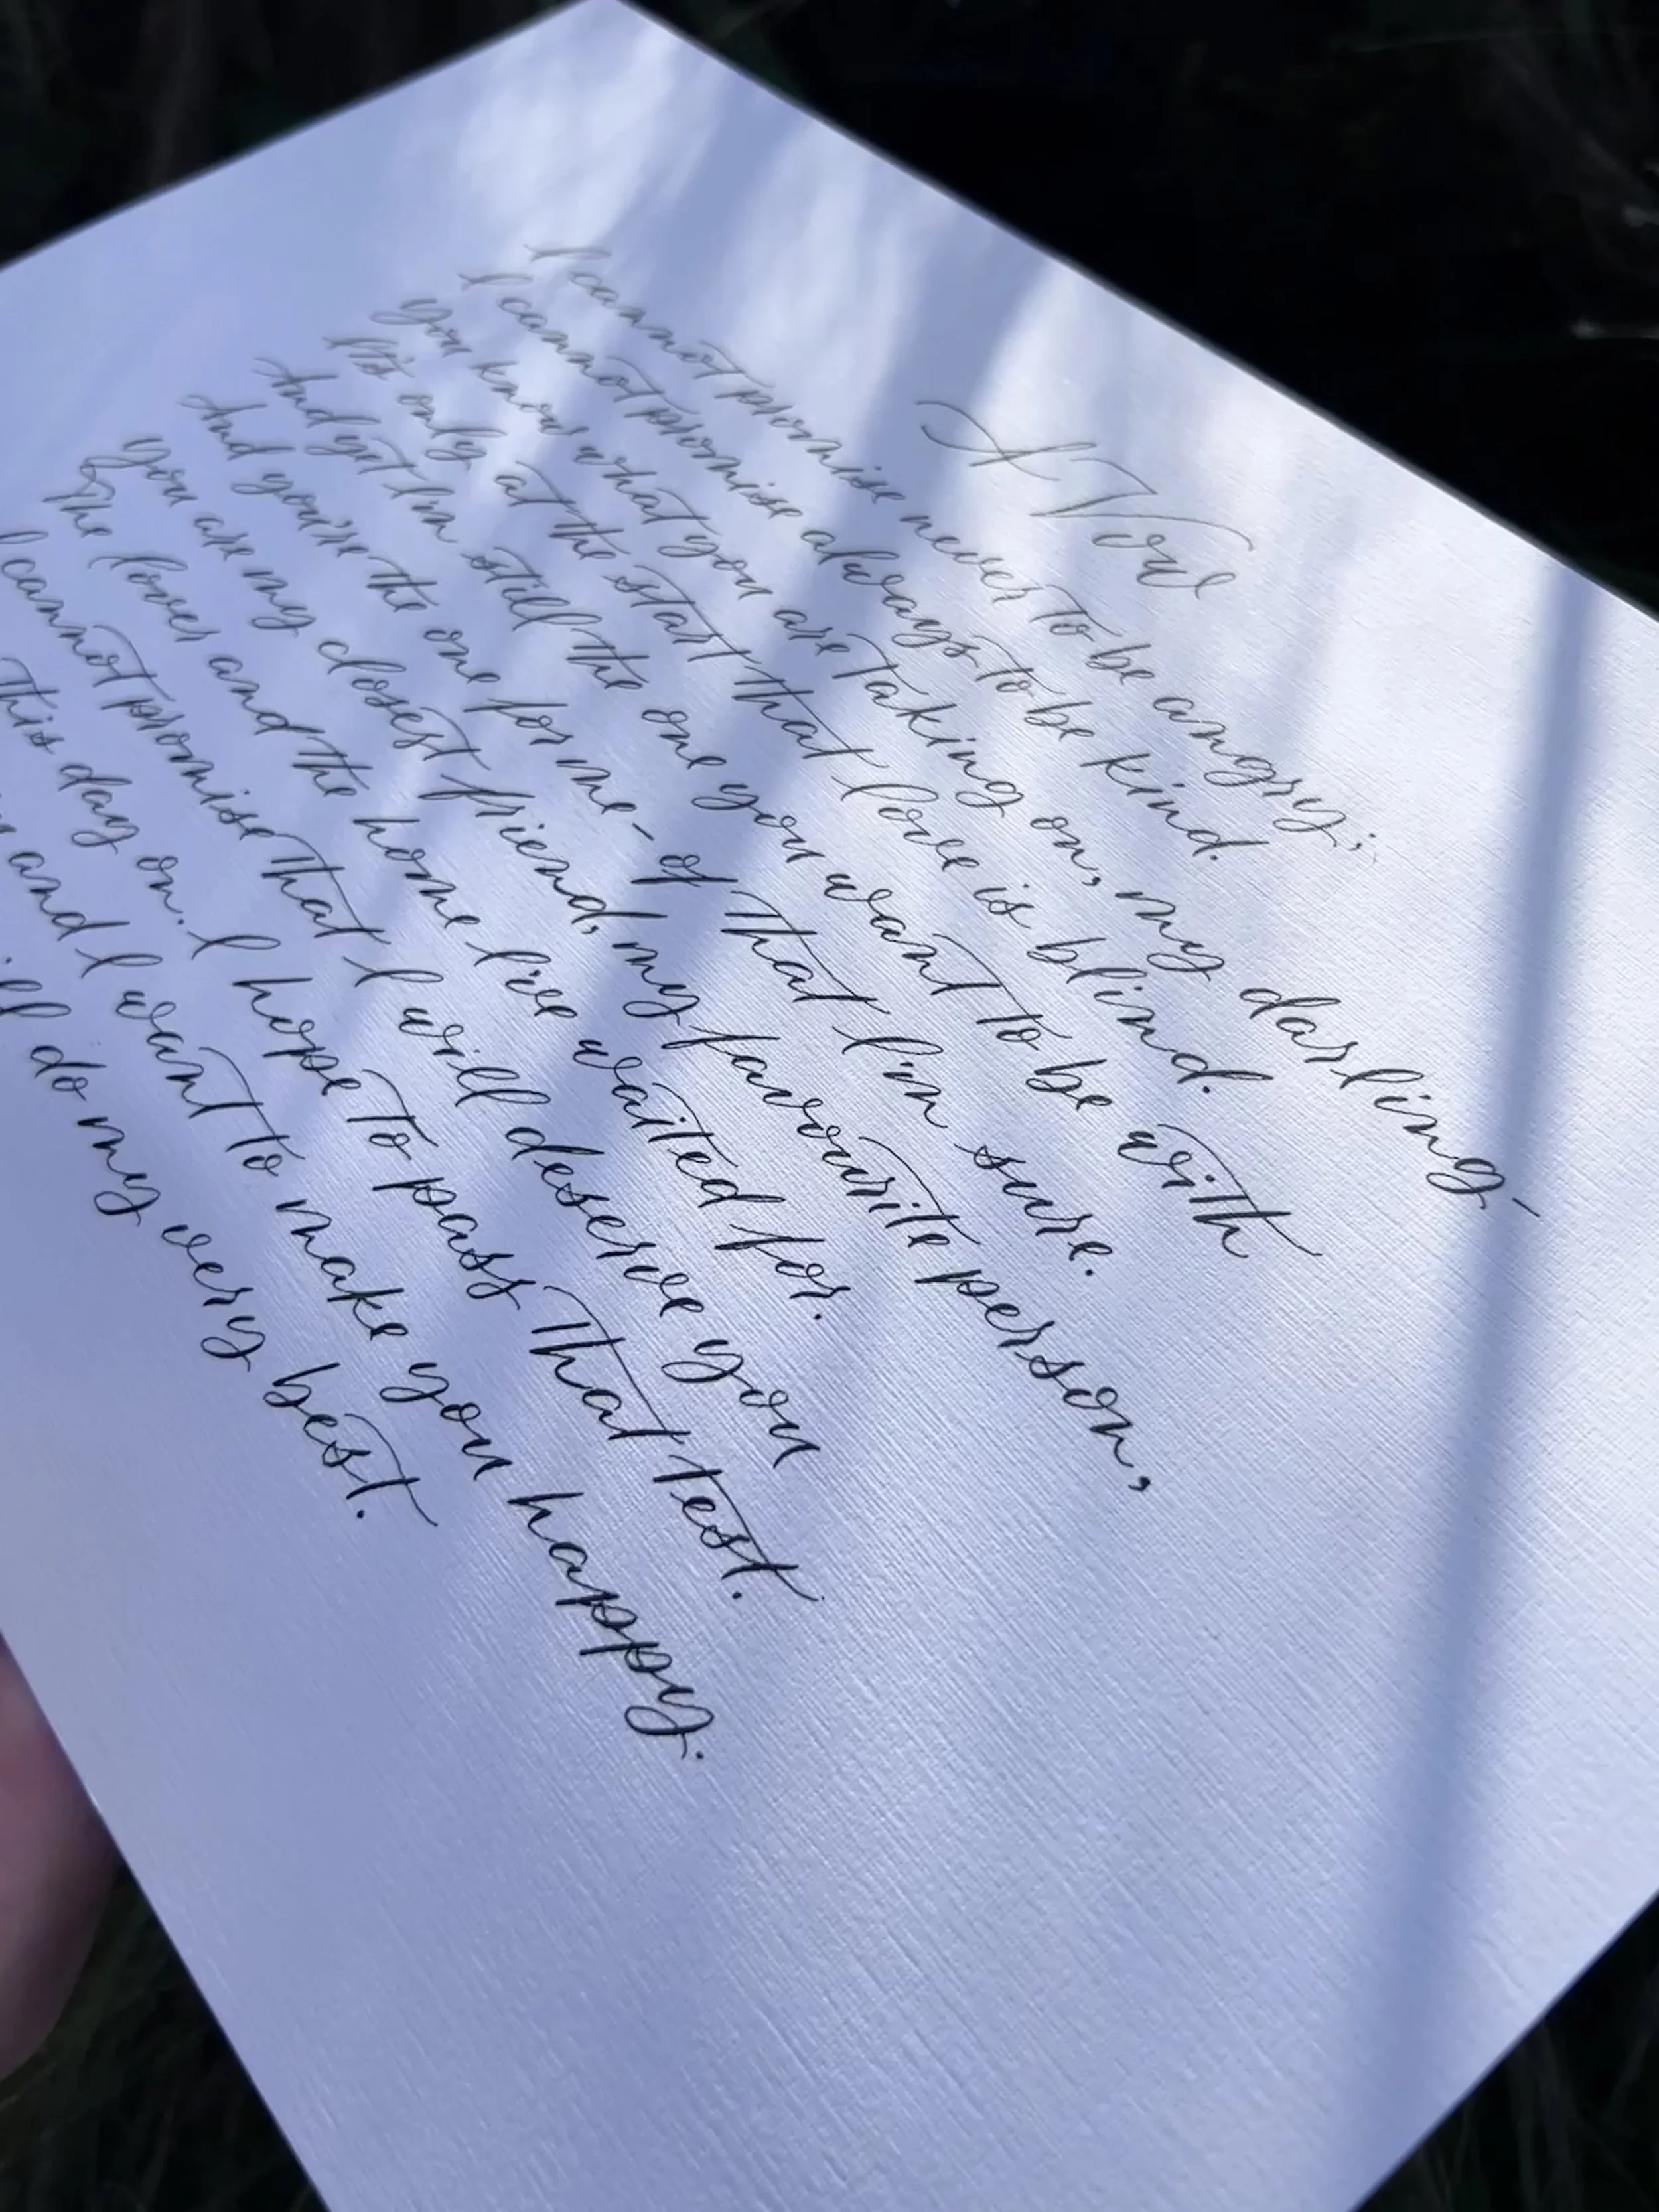 A Vow
I cannot promise never to be angry;
I cannot promise always to be kind.
You know what you are taking on, my darling –
It's only at the start that love is blind.
And yet I'm still the one you want to be with
And you're the one for me – of that I'm sure.
You are my closest friend, my favourite person,
The lover and the home I've waited for.
I cannot promise that I will deserve you
This day on. I hope to pass that test.
and I want to make you happy.
do my very best.